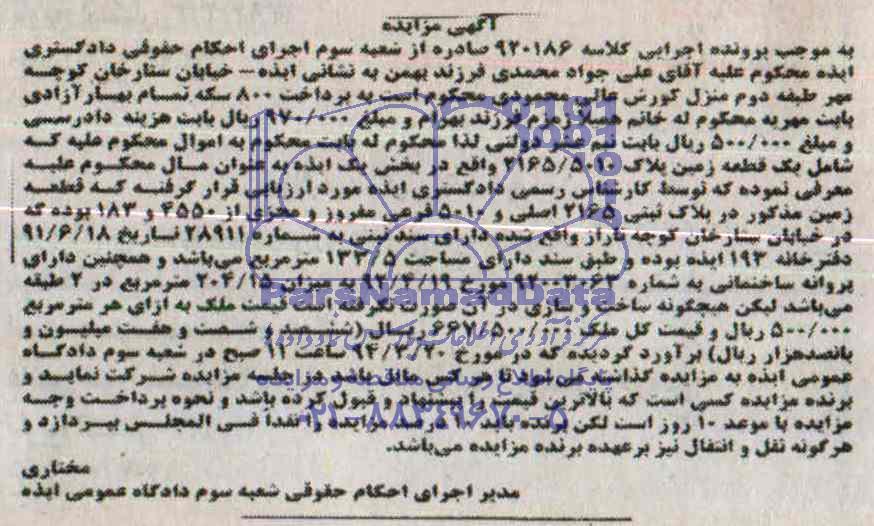 آگهی مزایده
به موجب پرونده اجرایی کلاسه ۹۲۰۱۸۶ صادره از شعبه سوم اجرای احکام حقوقی دادگستری
ایذه محکوم علیه آقای علی جواد محمدی فرزند بهمن به نشانی ایذه – خیابان ستارخان کوچه
مهر طبقه دوم منزل کورش عالی محمودی محکوم است به پرداخت ۸۰۰ سکه تمام بهار آزادی
بابت مهریه محکوم له خانم فرزند بهرام و مبلغ ۹۷۰/۰۰۰ ریال بابت هزینه دادرسی
و مبلغ ۵۰۰/۰۰۰ ریال بابت نیم عشر دولتی لذا محکوم له بابت محکوم به اموال محکوم علیه که
شامل یک قطعه زمین پلاک ۲۱۶۵/۵۰۱۰ واقع در بخش یک ایذه به عنوان مال محکوم علیه
معرفی نموده که توسط کارشناس رسمی دادگستری ایذه مورد ارزیابی قرار گرفته که قطعه
زمین مذکور در پلاک ثبتی ۲۱۶۵ اصلی و ۵۰۱۰ فرعی مفروز و مجزی از ۴۵۵۰ و ۱۸۳ بوده که
در خیابان ستارخان کوچه تاراز واقع شده دارای سند ثبتی به شماره ۲۸۹۱۱ تاریخ ۹۱/۶/۱۸
دفترخانه ۱۹۳ ایذه بوده و طبق سند دارای مساحت ۱۳۳/۵ مترمربع می‌باشد و همچنین دارای
پروانه ساختمانی به شماره مورخ به میزان ۲۰۴/۱۵ مترمربع در ۲ طبقه
می‌باشد لیکن هیچگونه ساخت و سازی در آن صورت نگرفته است قیمت ملک به ازای هر مترمربع
۵۰۰/۰۰۰ ریال و قیمت کل ملک ۶۶۷/۵۰۰/۰۰۰ ریال (ششصد و شصت و هفت میلیون و
پانصدهزار ریال) برآورد گردیده که در مورخ ۹۴/۳/۲۰ ساعت ۱۱ صبح در شعبه سوم دادگاه
عمومی ایذه به مزایده گذاشته می‌شود تا هر کس مایل باشد در جلسه مزایده شرکت نماید و
برنده مزایده کسی است که بالاترین قیمت را پیشنهاد و قبول کرده باشد و نحوه پرداخت وجه
مزایده با موعد ۱۰ روز است لکن برنده باید ۱۰ درصد مزایده را نقدا فی المجلس بپردازد و
هرگونه نقل و انتقال نیز برعهده برنده مزایده می‌باشد.
مختاری
مدیر اجرای احکام حقوقی شعبه سوم دادگاه عمومی ایذه
ParsNamadData
پایگاه اطلاع رسانی مناقصه و مزایده
۰۲۱-۸۸۳۴۹۶۷۰-۵